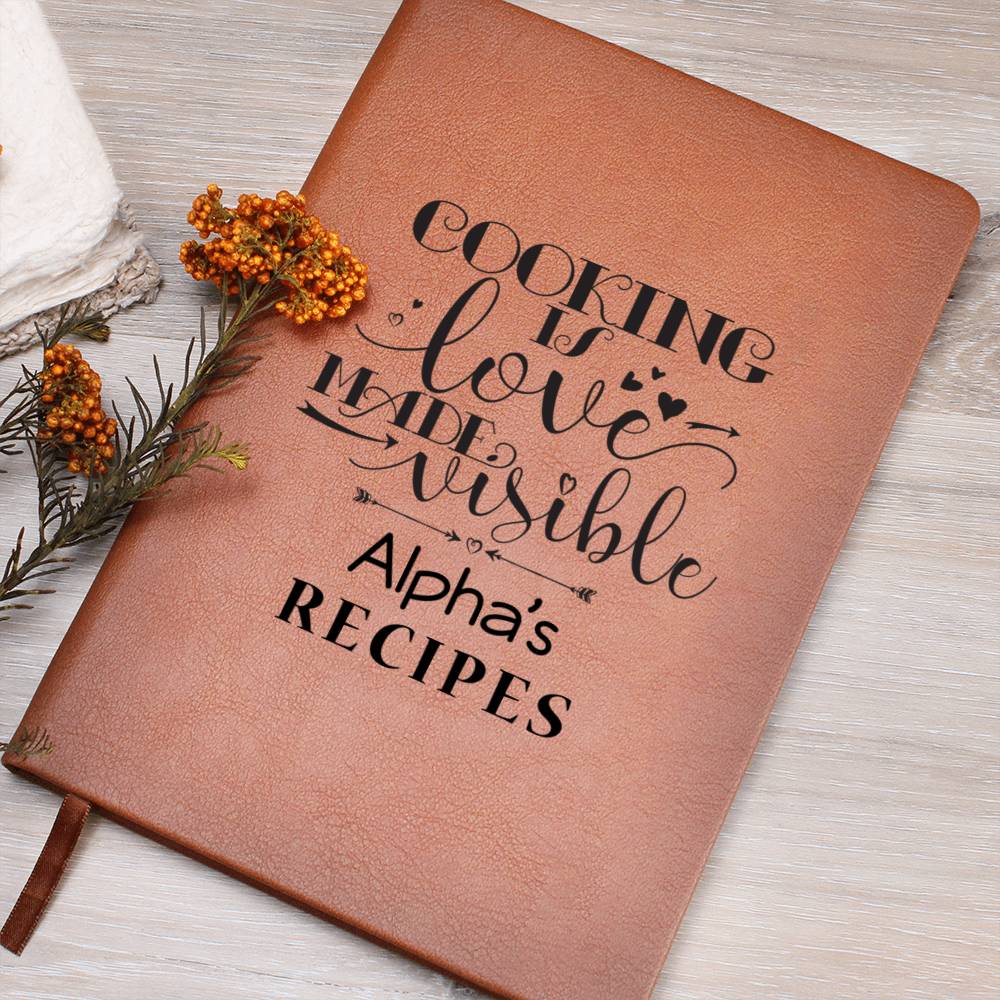 COOKING
IS
love
MADE
visible
Alpha's
RECIPES